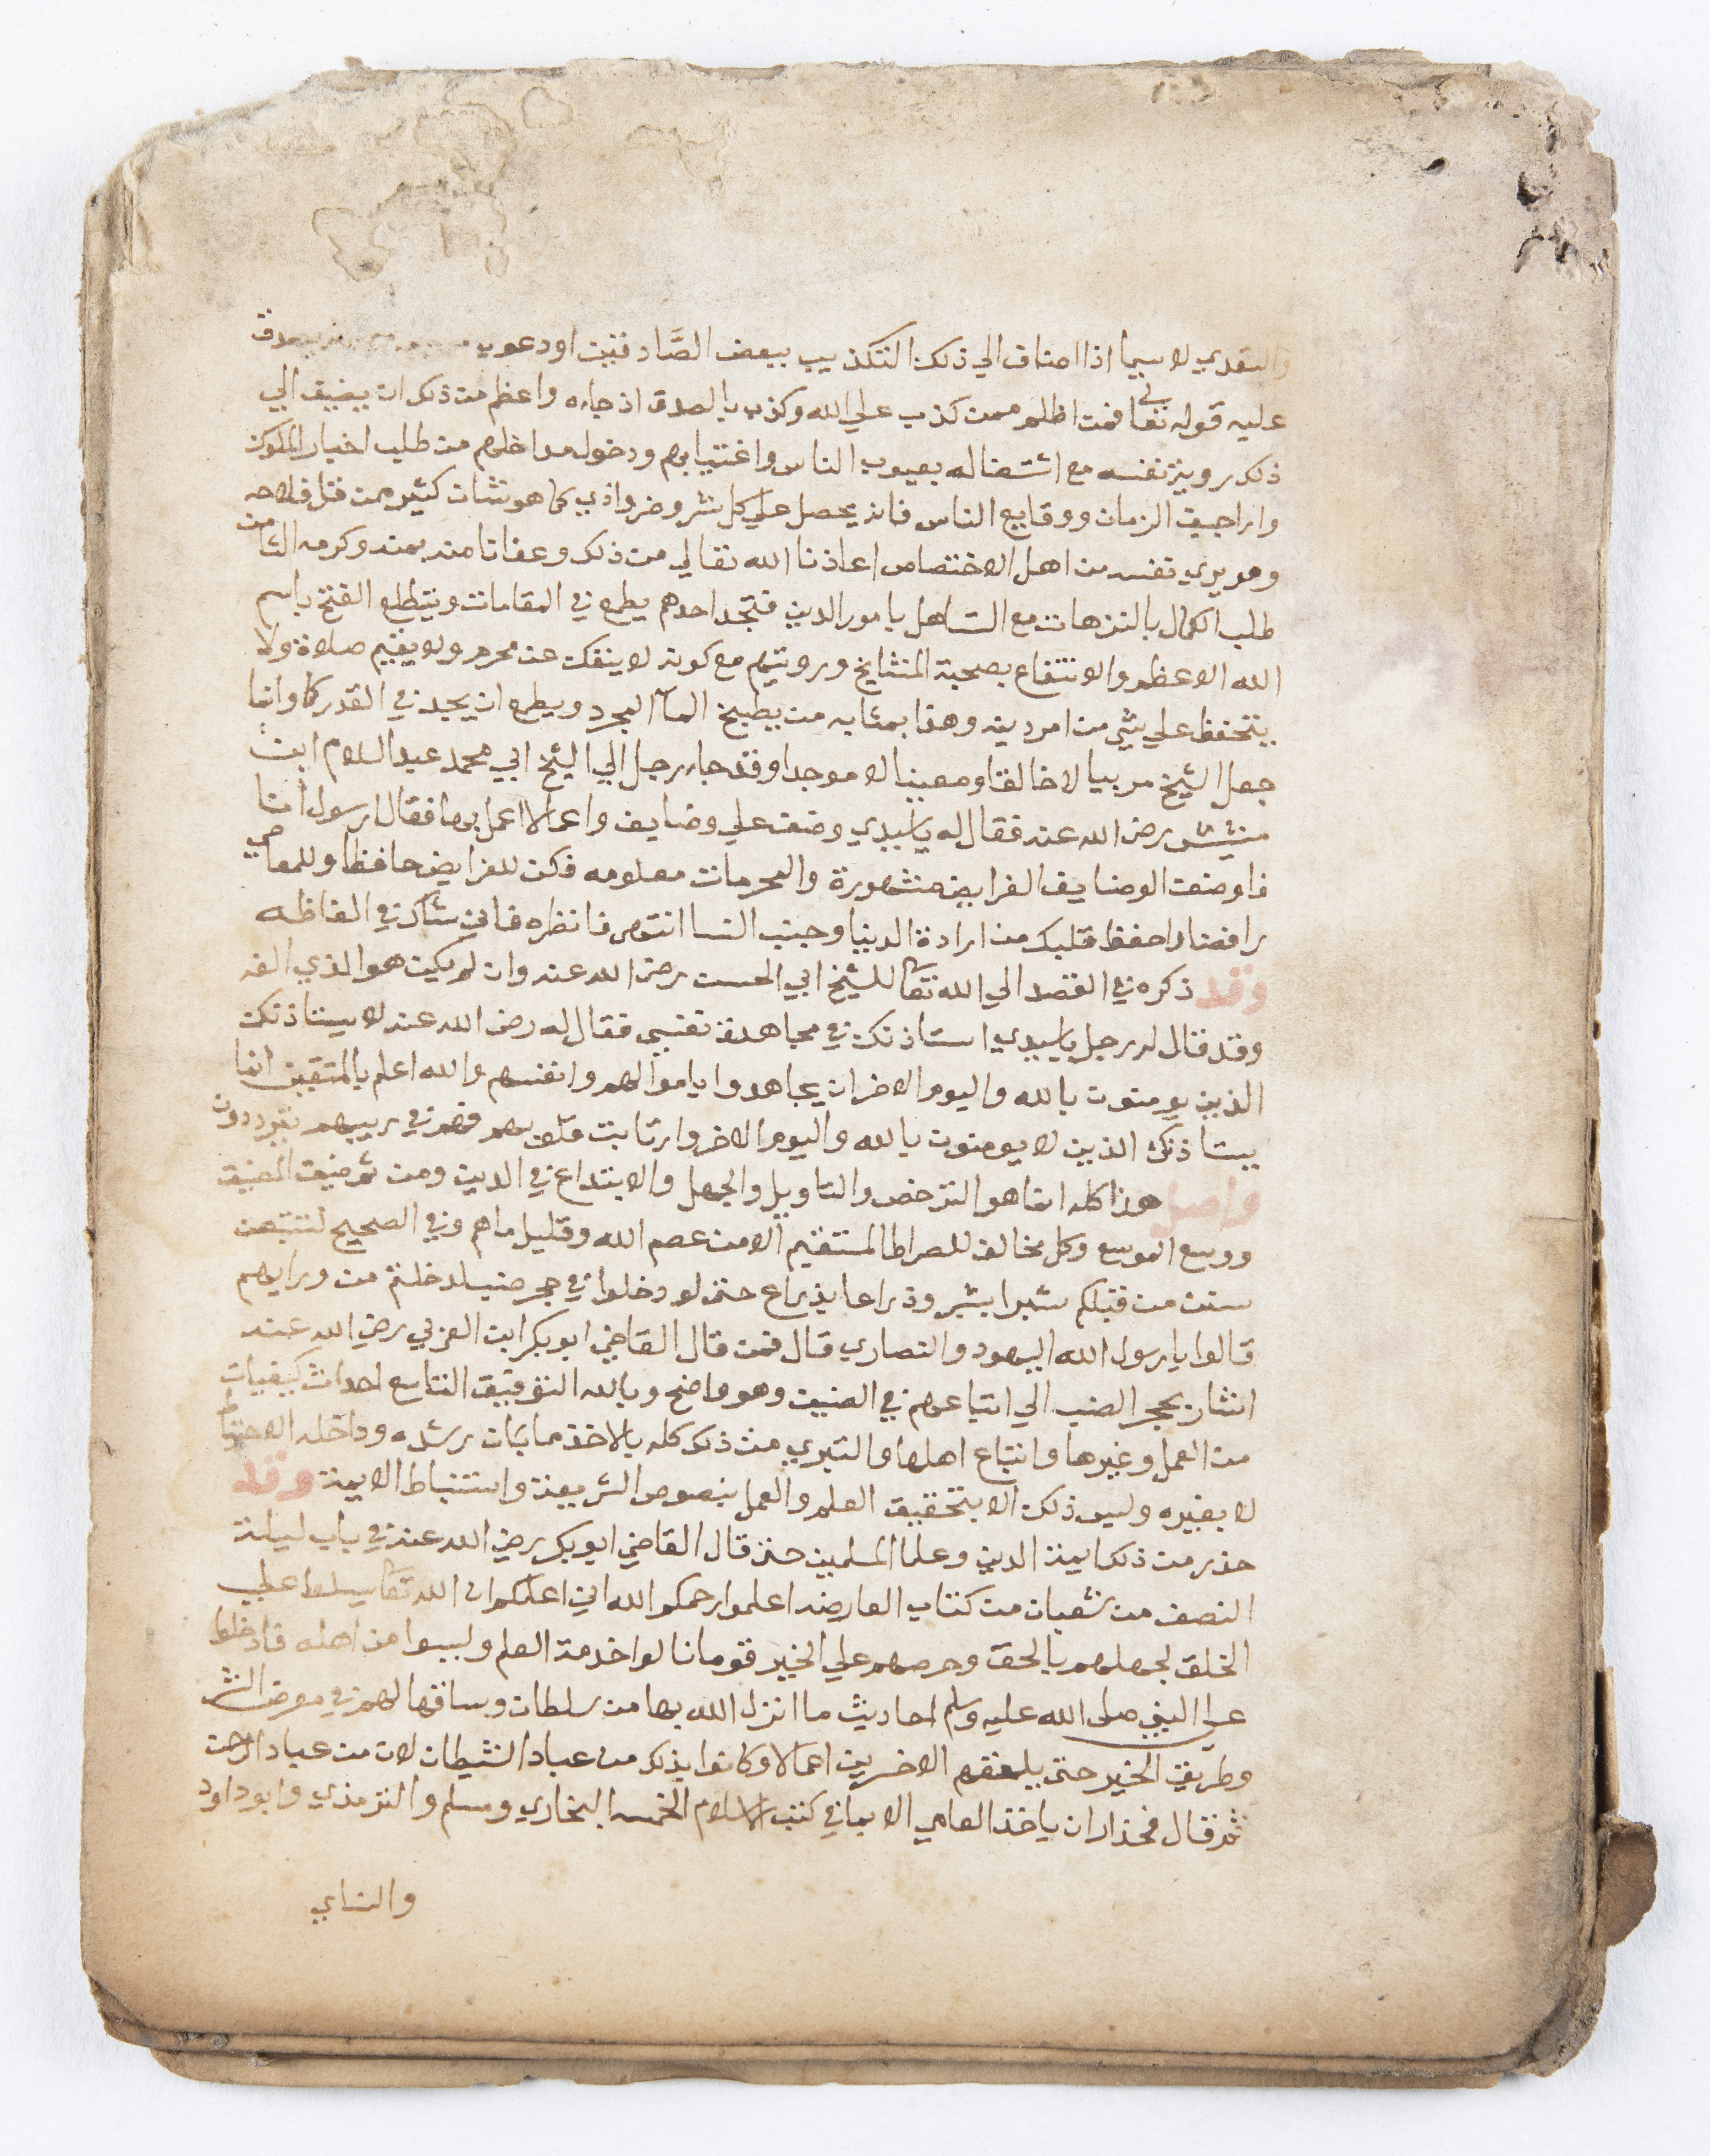 والتعدي لاسيما اذا اضاف الي ذلك التكذيب ببعض الصَّادقين او دعوي
عليه قوله تعالي فمن اظلم ممن كذب علي الله وكذب بالصدق اذ جاءه واعظم من ذلك ان يضيف الي
ذلك رويۃ نفسه مع اشتغاله بعيوب الناس واغتيابهم ودخوله مداخلهم من طلب اخبار الملوك
واراجيف الزمان ووقايع الناس فانه يحصل علي كل شر وضر واذي كما هو شان كثير ممن قل فلاحه
وهو يري نفسه من اهل الاختصاص اعاذنا الله تعالي من ذلك وعفانا منه بمنه وكرمه الثامن
طلب الكمال بالترهات مع التساهل بامور الدين فتجد احدهم يطمع في المقامات ويتطلع الفتح باسم
الله الاعظم والانتفاع بصحبة المشايخ ورويتهم مع كونه لا ينفك عن محرم ولا يقيم صلاة ولا
يتحفظ علي شي من امر دينه وهذا بمثابه من يطبخ المآ المجرد ويطمع ان يجد في القدر كما وانما
جعل الشيخ مربيا لا خالقا ومعينا لا موجدا وقد جاء رجل الي الشيخ ابي محمد عبد السلام ابن
مشيش رضي الله عنه فقال له ياسيدي وضف علي وضايف واعمالا اعمل بها فقال ارسول انا
فاوضف الوضايف الفرايض مشهورة والمحرمات معلومه فكن للفرايض حافظا وللمعاصي
رافضا واحفظ قلبك من ارادة الدنيا وحب النسا انتهي فانظره فاني شاك في الفاظه
وقد ذكره في القصد الي الله تعالي للشيخ ابي الحسن رضي الله عنه وان لم يكن هو الذي الفه
وقد قال له رجل ياسيدي استاذنك في مجاهدة نفسي فقال له رضي الله عنه لا يستاذنك
الذين يومنون بالله واليوم الاخر ان يجاهدوا باموالهم وانفسهم والله اعلم بالمتقين انما
يستاذنك الذين لا يومنون بالله واليوم الاخر وارتابت قلوبهم فهم في ريبهم يترددون
واصل هذا كله انما هو الترخص والتاويل والجهل والابتداع في الدين ومن ثم ضيق المضيق
ووسع الموسع وكل مخالف للصراط المستقيم الا من عصم الله وقليل ما هم وفي الصحيح لتتبعن
سنن من قبلكم شبرا بشبر وذراعا بذراع حتي لو دخلوا في جحر ضب لدخلتم من ورايهم
قالوا يا رسول الله اليهود والنصاري قال فمن قال القاضي ابو بكر ابن العربي رضي الله عنه
اشار بجحر الضب الي اتباعهم في الضيق وهو واضح وبالله التوفيق التاسع احداث كيفيات
من العمل وغيرها واتباع اهلها والتبري من ذلك كله بالاخذ مما بان رشده وداخله الاحتياط
لا بغيره وليس ذلك الا بتحقيق العلم والعمل بنصوص الشريعة واستنباط الايمة وقد
حذر من ذلك ايمة الدين وعلما المسلمين حتي قال القاضي ابو بكر رضي الله عنه في باب ليلة
النصف من شعبان من كتاب العارضه اعلموا رحمكم الله اني اعلمكم ان الله تعالي سلط علي
الخلق لجهلهم بالحق وحرصهم علي الخير قوما نالوا خدمة العلم وليسوا من اهله فادخلوا
علي النبي صلي الله عليه وسلم احاديث ما انزل الله بها من سلطان وساقها لهم في معرض الشر
وطريق الخير حتي يلحقهم الاخسرين اعمالا وكانوا بذلك من عباد الشيطان لا من عباد الرحمن
ثم قال فحذار ان ياخذ العامي الا بما في كتب الاسلام الخمسه البخاري ومسلم والترمذي وابو داود
والنساي